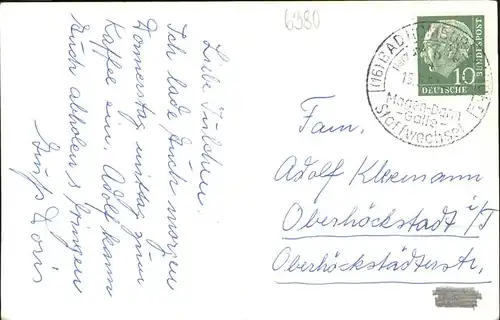 6980
Liebe Julchen!
Ich lade Euch morgen
Donnerstag mittag zum
Kaffee ein. Adolf kann
Euch abholen &
Gruß Doris
(16) BAD HOMBURG
Magen-Darm
Galle
Stoffwechsel
DEUTSCHE BUNDESPOST
10
Fam.
Adolf
Oberhöchstadt i/T
Oberhöchstädterstr.